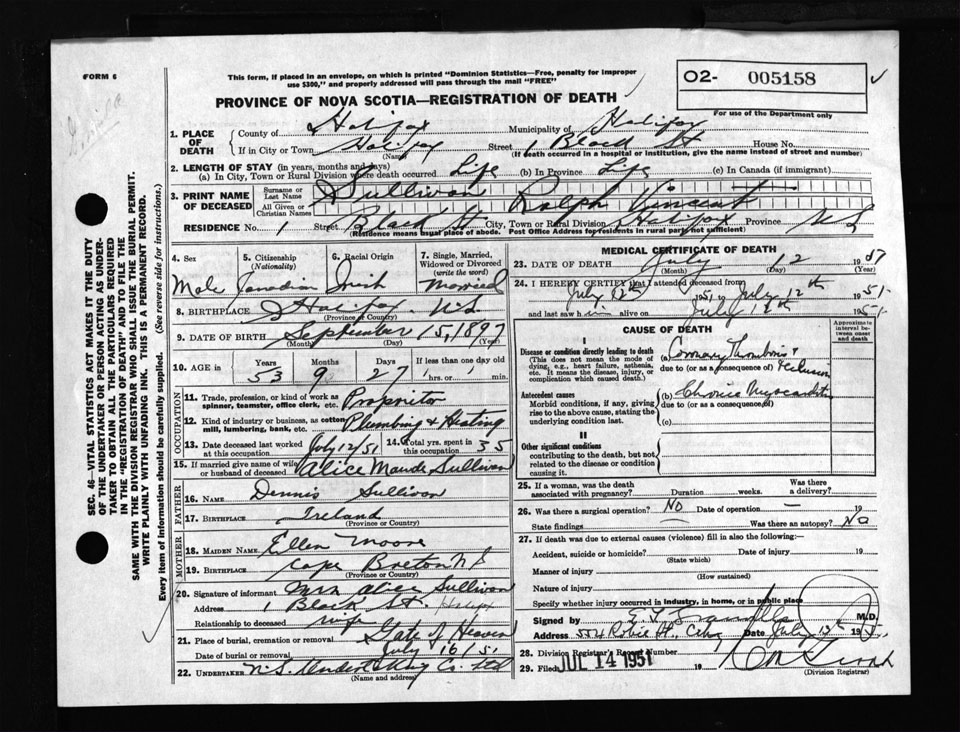 FORM 6
This form, if placed in an envelope, on which is printed "Dominion Statistics—Free, penalty for improper
use $300," and properly addressed will pass through the mail "FREE"
O2- 005158
For use of the Department only
PROVINCE OF NOVA SCOTIA—REGISTRATION OF DEATH
1. PLACE OF DEATH
County of Halifax Municipality of Halifax
If in City or Town Halifax Street 1 Black St House No.
(Name) (If death occurred in a hospital or institution, give the name instead of street and number)
2. LENGTH OF STAY (in years, months and days)
(a) In City, Town or Rural Division where death occurred Life (b) In Province Life (c) In Canada (if immigrant)
3. PRINT NAME OF DECEASED
Surname or Last Name Sullivan
All Given or Christian Names Ralph Vincent
RESIDENCE No. 1 Street Black St. City, Town or Rural Division Halifax Province N S
(Residence means usual place of abode. Post Office Address for residents in rural parts not sufficient)
4. Sex
Male
5. Citizenship
(Nationality)
Canadian
6. Racial Origin
Irish
7. Single, Married,
Widowed or Divorced
(write the word)
Married
8. BIRTHPLACE Halifax N.S.
(Province or Country)
9. DATE OF BIRTH September 15, 1897
(Month) (Day) (Year)
10. AGE in
Years Months Days If less than one day
53 9 27 hrs. or min.
OCCUPATION
11. Trade, profession, or kind of work as
spinner, teamster, office clerk, etc. Propritor
12. Kind of industry or business, as cotton
mill, lumbering, bank, etc. Plumbing & Heating
13. Date deceased last worked
at this occupation July 12/51
14. Total yrs. spent in
this occupation 35
15. If married give name of wife
or husband of deceased Alice Maude Sullivan
FATHER
16. Name Dennis Sullivan
17. BIRTHPLACE Ireland
(Province or Country)
MOTHER
18. MAIDEN NAME Ellen Moore
19. BIRTHPLACE Cape Breton N S
(Province or Country)
20. Signature of informant Mrs Alice Sullivan
Address 1 Black St. Halifax
Relationship to deceased wife
21. Place of burial, cremation or removal Gate of Heaven
Date of burial or removal July 16/51
22. UNDERTAKER N.S. Undertaking Co. Ltd
(Name and address)
MEDICAL CERTIFICATE OF DEATH
23. DATE OF DEATH July 12 19
(Month) (Day) (Year)
24. I HEREBY CERTIFY that I attended deceased from
July 12th 1951 to July 12th 1951
and last saw him alive on July 12th 1951
CAUSE OF DEATH
Approximate interval between onset and death
I
Disease or condition directly leading to death
(This does not mean the mode of
dying, e.g., heart failure, asthenia,
etc. It means the disease, injury, or
complication which caused death.)
(a) Coronary Thrombosis &
due to (or as a consequence of)
Antecedent causes
Morbid conditions, if any, giving
rise to the above cause, stating the
underlying condition last.
(b) Chronic Myocarditis
due to (or as a consequence of)
(c)
II
Other significant conditions
contributing to the death, but not
related to the disease or condition
causing it.
25. If a woman, was the death
associated with pregnancy? Duration weeks. Was there a delivery?
26. Was there a surgical operation? No Date of operation — 19
State findings — Was there an autopsy? No
27. If death was due to external causes (violence) fill in also the following:—
Accident, suicide or homicide? Date of injury 19
(State which)
Manner of injury
(How sustained)
Nature of injury
Specify whether injury occurred in industry, in home, or in public place
Signed by M.D.
Address Robie St., City Date July 13 1951
28. Division Registrar's Record Number
29. Filed JUL 14 1951 19
(Division Registrar)
SEC. 46—VITAL STATISTICS ACT MAKES IT THE DUTY
OF THE UNDERTAKER OR PERSON ACTING AS UNDER-
TAKER TO OBTAIN ALL THE PARTICULARS REQUIRED
IN THE "REGISTRATION OF DEATH" AND TO FILE THE
SAME WITH THE DIVISION REGISTRAR WHO SHALL ISSUE THE BURIAL PERMIT.
WRITE PLAINLY WITH UNFADING INK. THIS IS A PERMANENT RECORD.
Every item of information should be carefully supplied. (See reverse side for instructions.)